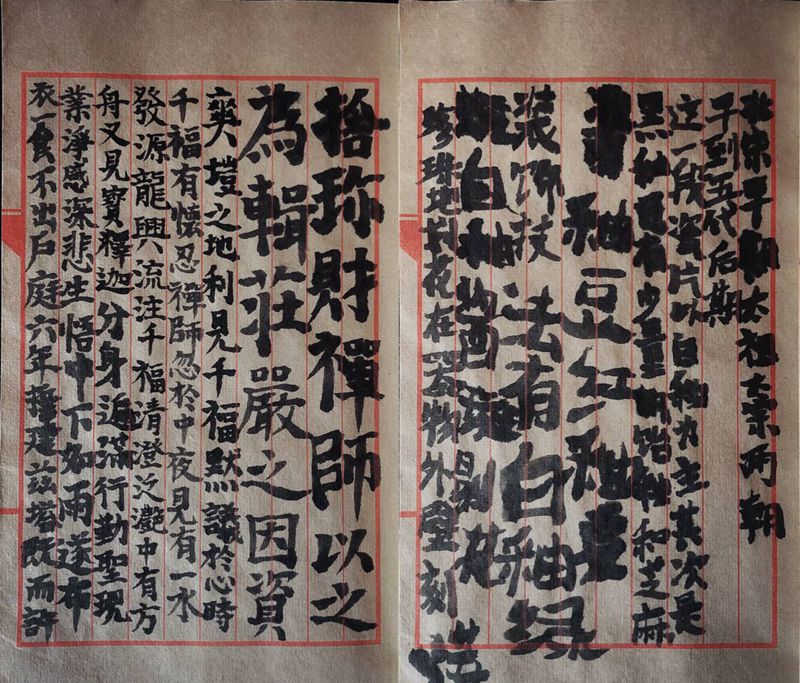 北宋早期太祖太宗两朝
于到五代后期
这一段瓷片以白釉为主其次是
黑釉有少量釉和芝麻
青釉豆红釉
装饰技法有白釉绿
白釉剔花
珍珠地划花在器物外壁刻
捨珎財禪師以之
為輯莊嚴之因資
爽塏之地利見千福默議於心時
千福有懷忍禪師忽於中夜見有一水
發源龍興流注千福清澄泛灧中有方
舟又見寶釋迦分身遍滿行勤聖現
業淨感深悲生悟中下如雨遂布
衣一食不出戶庭六年擬建茲塔既而許